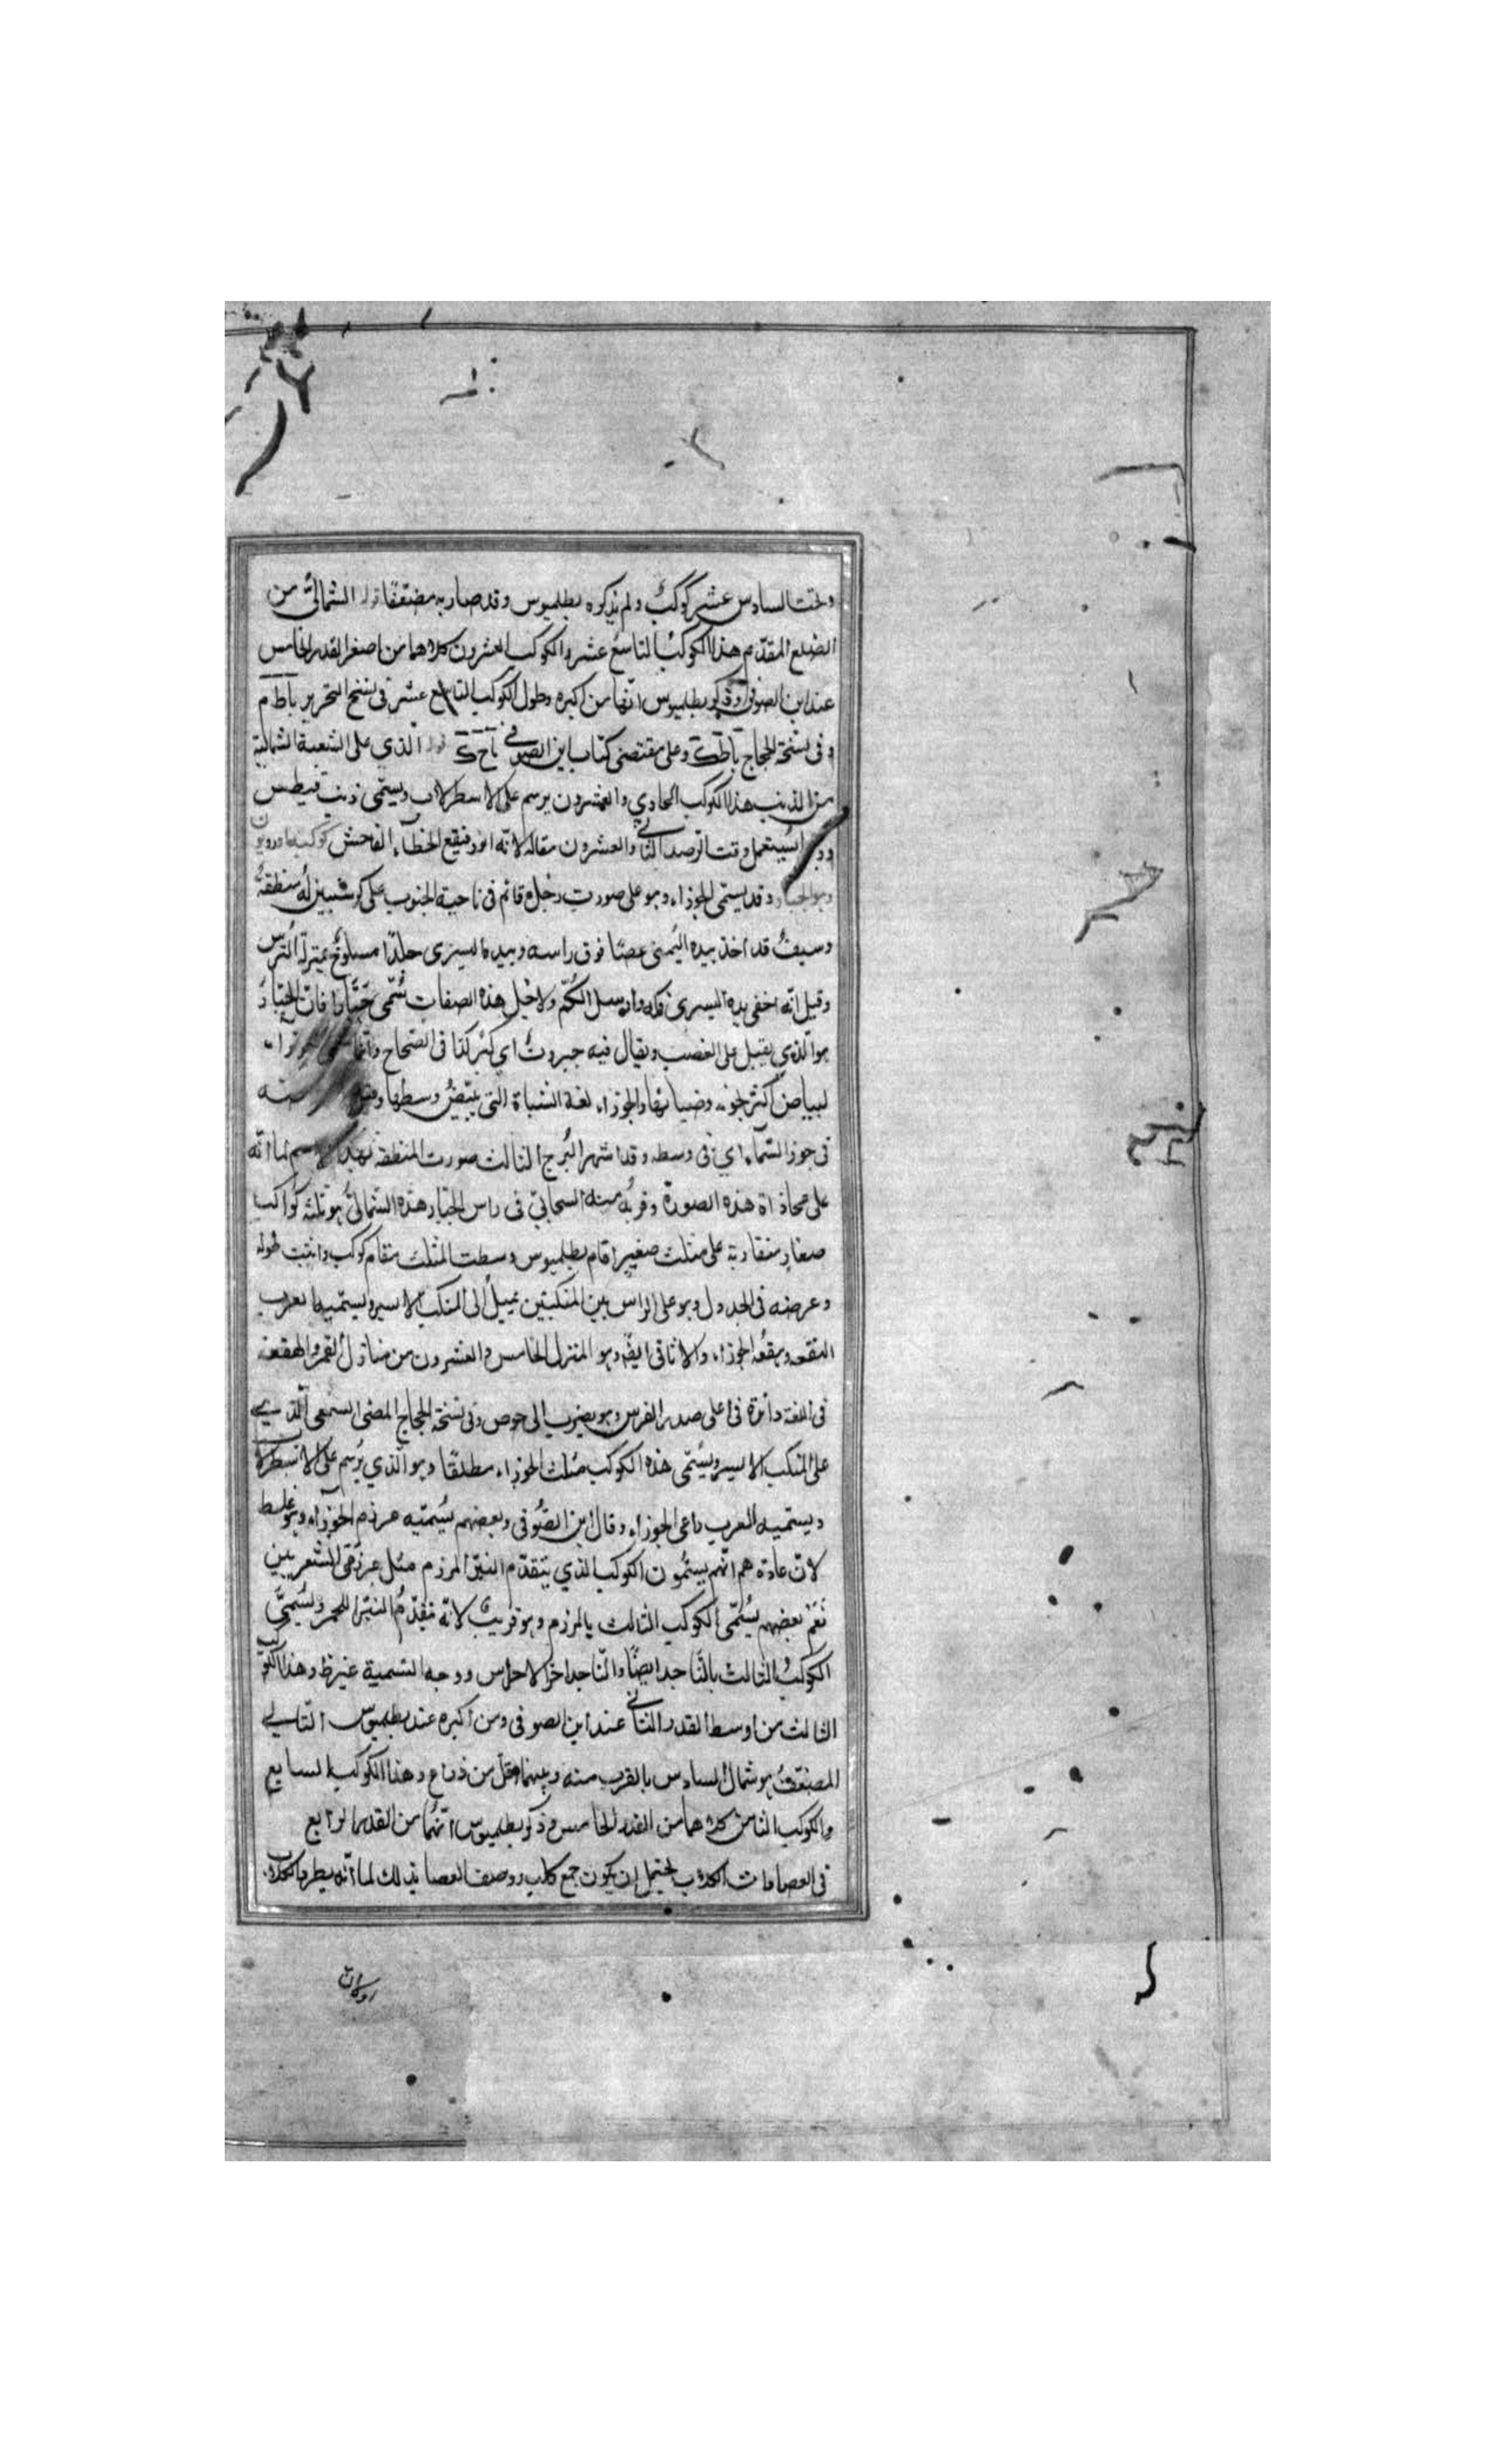 وتحت السادس عشر كوكب ولم يذكره بطلميوس وقد صار به مضعفا قوله الشمالي من
الضلع المقدم هذا الكوكب التاسع عشر والكوكب العشرون كلاهما من اصغر القدر الخامس
عند ابن الصوفي وذكر بطلميوس انهما من اكبره وطول الكوكب التاسع عشر في نسخ التحرير
وفي نسخة الحجاج وعلى مقتضى كتاب ابن الصوفي قوله الذي على الشعبة الشمالية
من الذنب هذا الكوكب الحادي والعشرون يرسم على الاسطرلاب ويسمى ذنب قيطس
يستعمل وقت الرصد الثاني والعشرون مقاله لانه انور فيقع الخطاء الفاحش كوكبة
وهو الجبار وقد يسمى الجوزاء وهو على صورت رجل قائم في ناحية الجنوب على كرسيين له منطقة
وسيف قد اخذ بيده اليمنى عصا فوق راسه وبيده اليسرى جلدا مسلوخ بمنزلة الترس
وقيل انه اخفى يده اليسرى في كمه وارسل الكم ولاجل هذه الصفات سمى جبارا فان الجبار
هو الذي يقبل على الغضب ويقال فيه جبروت اي كبر كذا في الصحاح وانما
لبياض اكثر نجومه وضيائها والجوزاء لغة الشاة التي يبيض وسطها
في جوز السماء اي في وسطه وقد اشتهر البرج الثالث صورت المنطقة بهذا الاسم لما انه
على محاذاة هذه الصورة وقربه منه السحابي في راس الجبار هذه الشمالي هو ثلثة كواكب
صغار متقاربة على مثلث صغير اقام بطلميوس وسط المثلث مقام كوكب واثبت طوله
وعرضه في الجدول وهو على الراس بين المنكبين يميل الى المنكب الايسر ويسميها العرب
الهقعه وهقعة الجوزاء والاثافي ايضا وهو المنزل الخامس والعشرون من منازل القمر والهقعه
في اللغة دائرة في اعلى صدر الفرس وهو يضرب الى حوص وفي نسخة الحجاج المضى السمعى الذي
على المنكب الايسر ويسمى هذه الكوكب منكب الجوزاء مطلقا وهو الذي يرسم على الاسطرلاب
ويسميه العرب راعى الجوزاء وقال ابن الصوفي وبعضهم يسميه مرزم الجوزاء وهو غلط
لان عادة هم انهم يسمون الكوكب الذي يتقدم النير المرزم مثل مرزمى الشعريين
نعم بعضهم يسمى الكوكب الثالث بالمرزم وهو قريب لانه متقدم النير الاحمر ويسمى
الكوكب الثالث بالناجد ايضا والناجد اخر الاضراس ووجه التسمية غير ظ وهذا الكوكب
الثالث من اوسط القدر الثاني عند ابن الصوفي ومن اكبره عند بطلميوس التالي
المضعف هو شمال السادس بالقرب منه وبينهما اقل من ذراع وهذا الكوكب السابع
والكوكب الثامن كلاهما من القدر الخامس وذكر بطلميوس انهما من القدر الرابع
في العصا ذات الكلاب يحتمل ان يكون جمع كلب ووصف العصا بذلك لما انه يطرد بها
اوكان